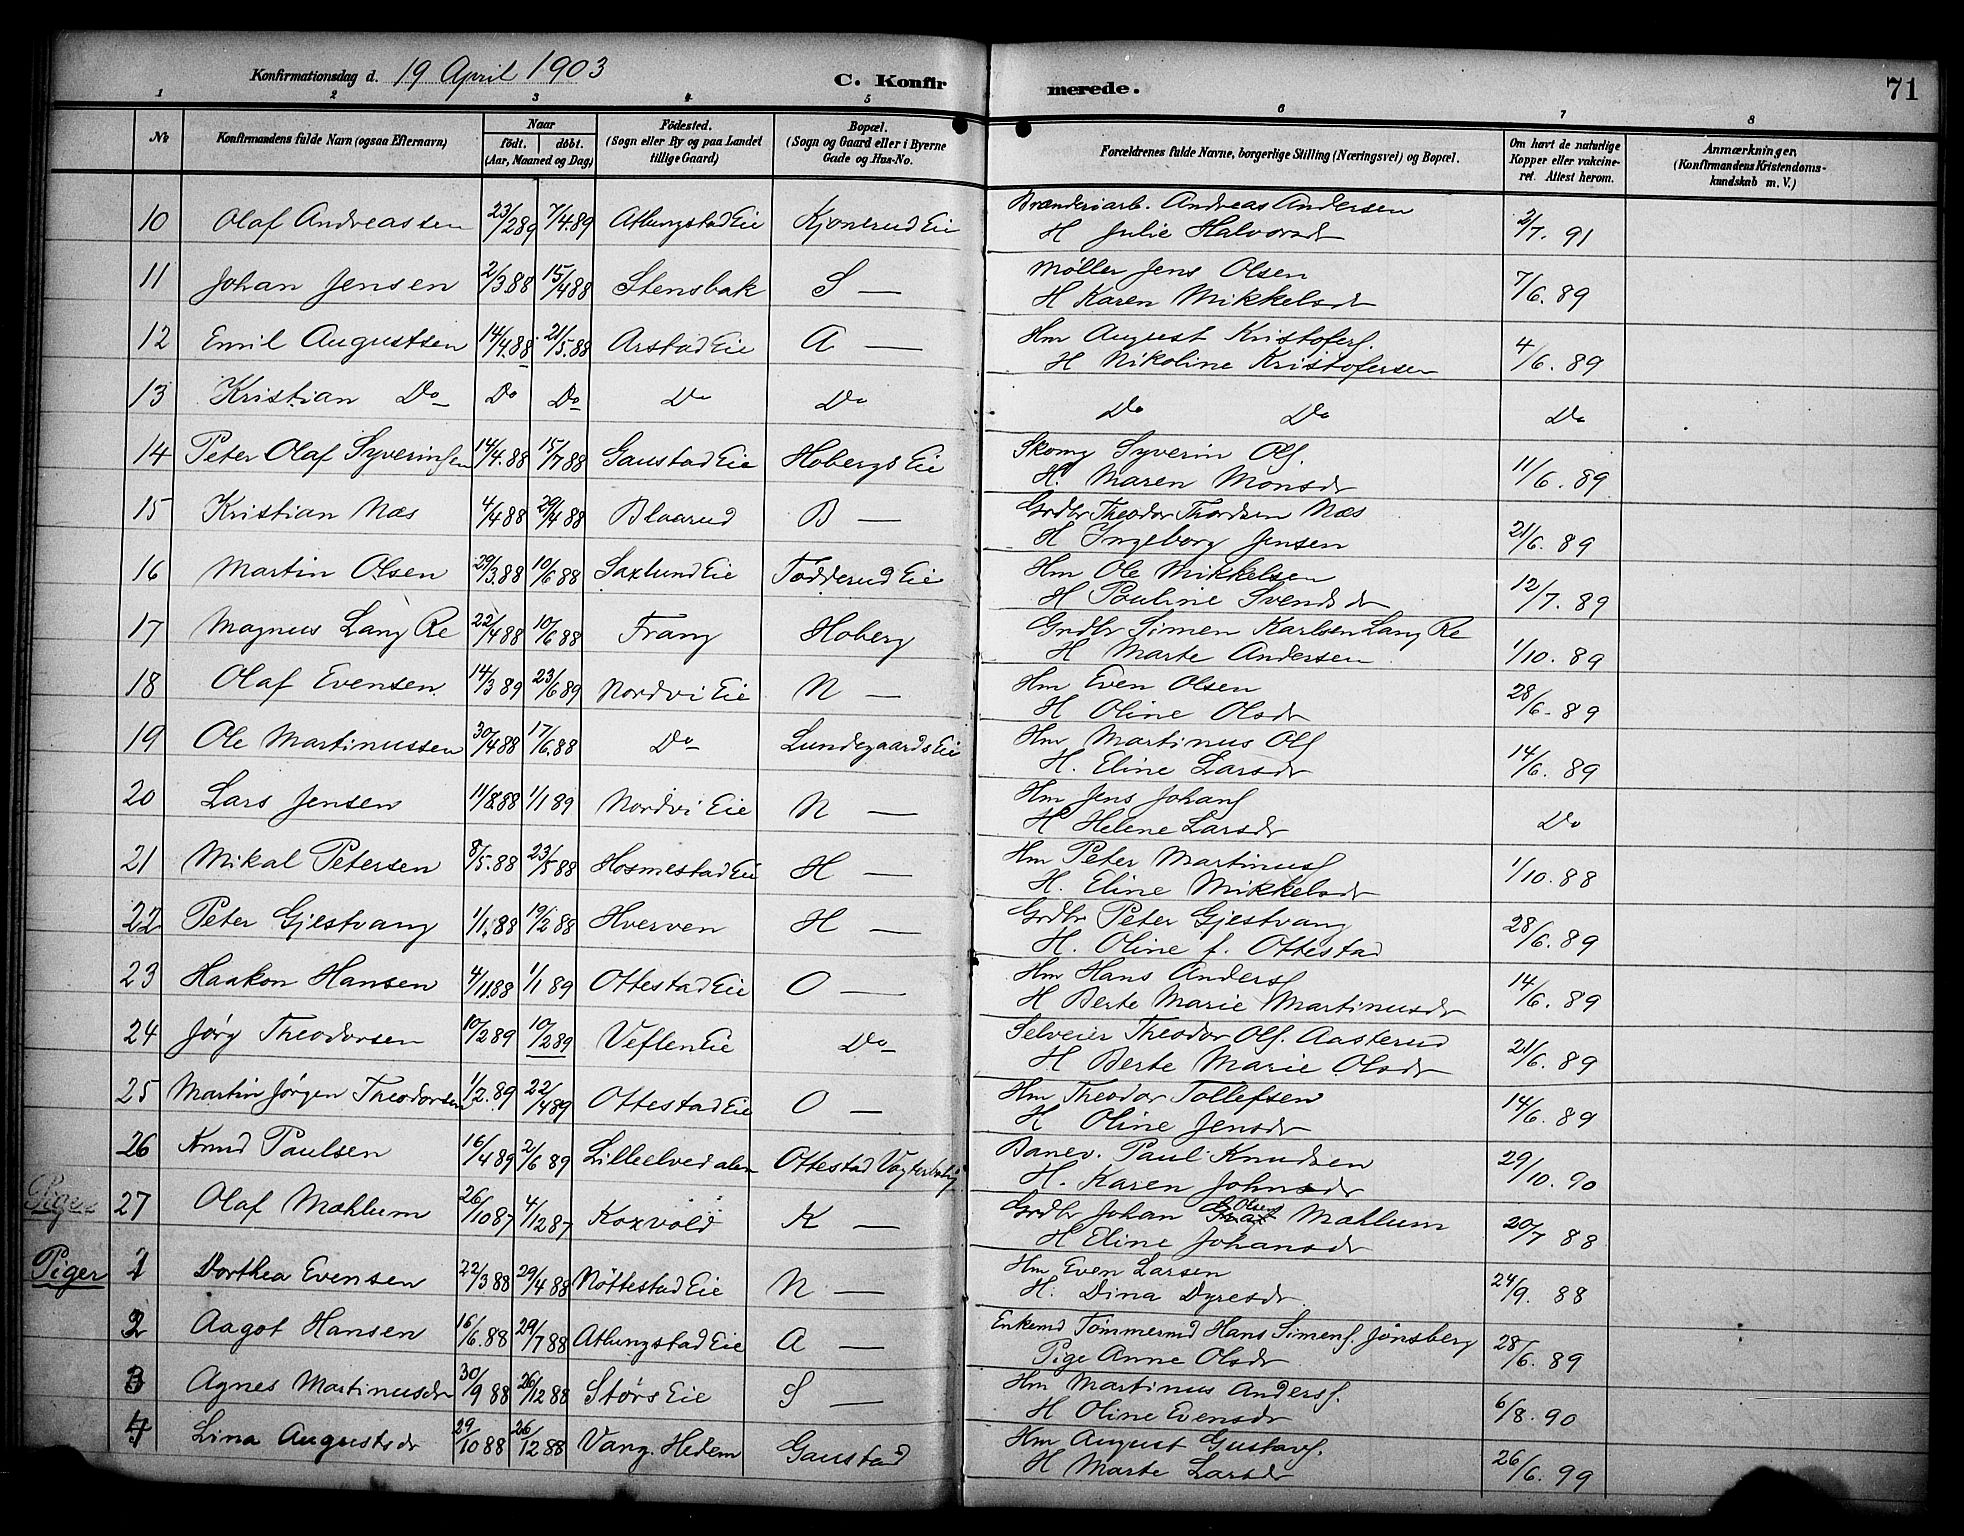 Konfirmationsdag d. 19 April 1903 C. Konfirmerede. 71
1 2 3 4 5 6 7 8
No Konfirmandens fulde Navn (ogsaa Efternavn) Naar født. døbt. (Aar, Maaned og Dag) Fødested. (Sogn eller By og paa Landet tillige Gaard) Bopæl. (Sogn og Gaard eller i Byerne Gade og Hus-No. Forældrenes fulde Navne, borgerlige Stilling (Næringsvei) og Bopæl. Om havt de naturlige Kopper eller vakcineret. Attest herom. Anmærkninger (Konfirmandens Kristendomskundskab m. V.)
10 Olaf Andreassen 23/2 89 7/4.89 Atlungstad Eie Kjonerud Eie Brænderiarb. Andreas Andersen 2/7. 91
H Julie Halvorsdr
11 Johan Jensen 2/3.88 15/4 88 Stensbak S — Møller Jens Olsen 7/6. 89
H Karen Mikkelsdr
12 Emil Augustsen 14/4.88 21/5.88 Arstad Eie A — Hm August Kristofers. 4/6. 89
H Nikoline Kristofersen
13 Kristian Do Do Do Do Do Do Do Do
14 Peter Olaf Syverinsen 14/4.88 15/7 88 Gaustad Eie Hobergs Eie Skomg Syverin Ols. 11/6. 89
H. Maren Monsdr
15 Kristian Næs 4/4 88 29/4 88 Blaarud B — Grdbr Theodor Thordsen Næs 21/6. 89
H Ingeborg Jensen
16 Martin Olsen 29/3.88 10/6 88 Saxlund Eie Tødderud Eie Hm Ole Mikkelsen 12/7. 89
H Pauline Svendsdr
17 Magnus Lang Re 22/4 88 10/6 88 Frang Hoberg Grdbr Simen Karlsen Lang Re 1/10. 89
H Marte Andersen
18 Olaf Evensen 14/3 89 23/6 89 Nordvi Eie N — Hm Even Olsen 28/6. 89
H Oline Olsdr
19 Ole Martinussen 30/4 88 17/6.88 Do Lundegaards Eie Hm Martinus Ols 14/6. 89
H. Eline Larsdr
20 Lars Jensen 11/8.88 1/1 89 Nordvi Eie N — Hm Jens Johans Do
H Helene Larsdr
21 Mikal Petersen 8/5.88 23/5 88 Hosmestad Eie H — Hm Peter Martinus 1/10. 88
H. Eline Mikkelsdr
22 Peter Gjestvang 1/1.88 19/2 88 Hverven H — Grdbr Peter Gjestvang 28/6. 89
H. Oline f. Ottestad
23 Haakon Hansen 4/11.88 1/1 89 Ottestad Eie O — Hm Hans Anders 14/6. 89
H Berte Marie Martinusdr
24 Jørg Theodorsen 10/2 89 10/2 89 Veflen Eie Do Selveier Theodor Ols. Aasterud 21/6. 89
H Berte Marie Olsdr
25 Martin Jørgen Theodorsen 1/2.89 22/4 89 Ottestad Eie O — Hm Theodor Tollefsen 14/6. 89
H Oline Jensdr
26 Knud Paulsen 16/4 89 2/6 89 Lilleelvedalen Ottestad Vogterbolig Banev. Paul Knudsen 29/10. 90
H. Karen Johnsdr
Piger 27 Olaf Mæhlum 26/10 87 4/12 87 Koxvold K — Grdbr Johan Olsen Mæhlum 20/7 88
H Eline Johansdr
Piger 1 Dorthea Evensen 22/3 88 29/4 88 Nøttestad Eie N — Hm Even Larsen 24/9. 88
H. Dina Dyresdr
2 Aagot Hansen 16/6.88 29/7 88 Atlungstad Eie A — Enkemd Tømmermd Hans Simens. Jønsberg 28/6. 89
Pige Anne Olsdr
3 Agnes Martinusdr 30/9 88 26/12 88 Størs Eie S — Hm Martinus Anders. 6/8. 90
H Oline Evensdr
4 Lina Augustsdr 29/10 88 26/12 88 Vang. Hedem Gaustad Hm August Gustavs. 26/6. 99
H Marte Larsdr